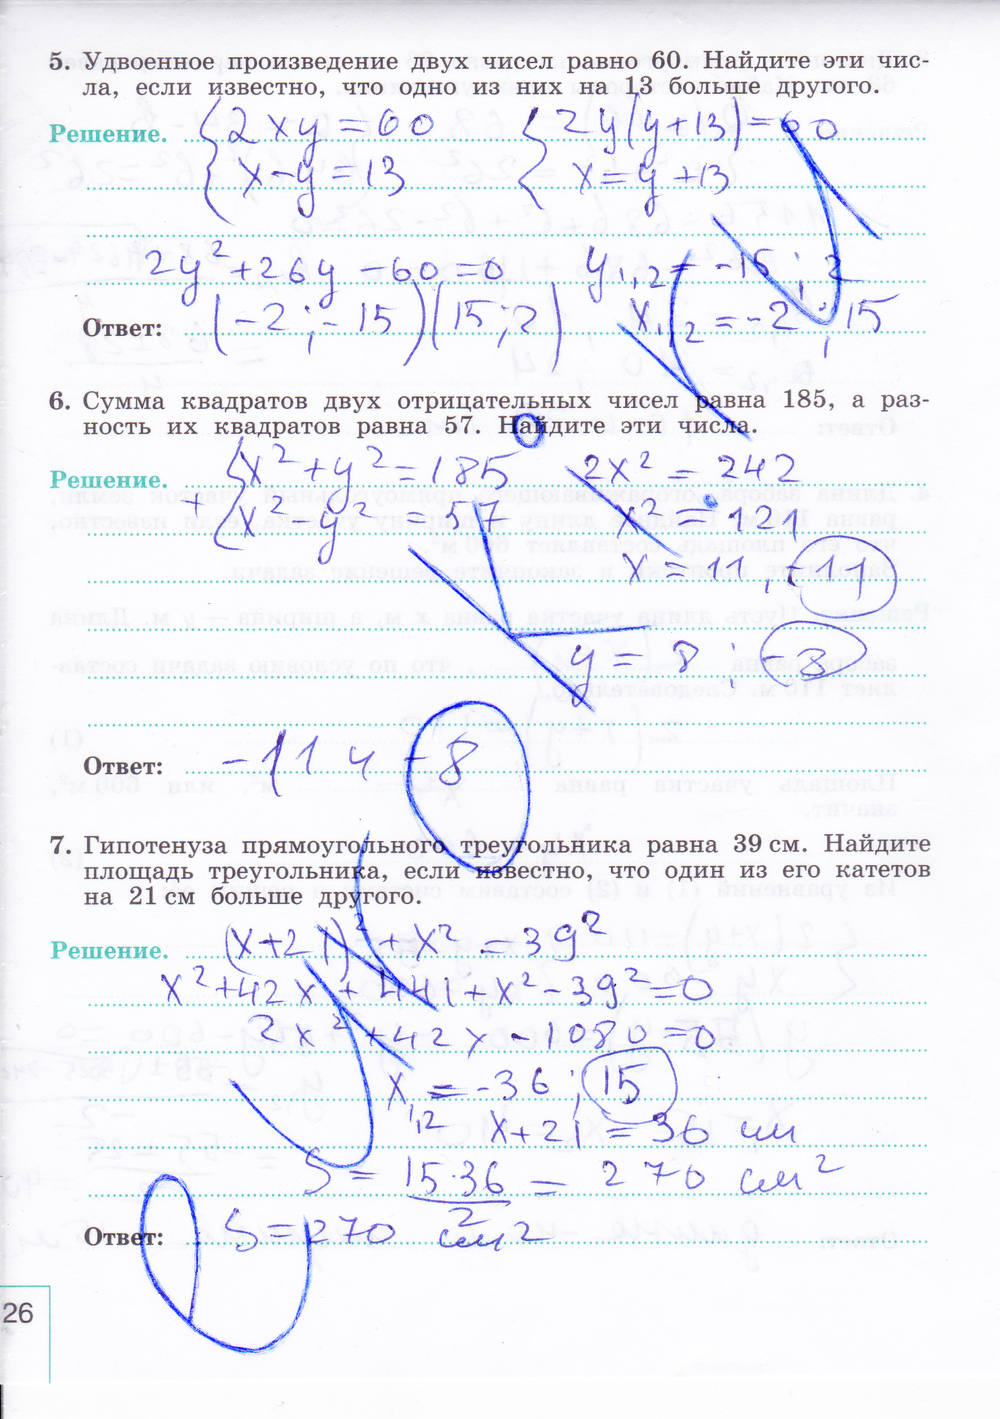 5. Удвоенное произведение двух чисел равно 60. Найдите эти чис-
ла, если известно, что одно из них на 13 больше другого.
Решение. { 2xy = 60 { 2y(y+13) = 60
x - y = 13 x = y + 13
2y² + 26y - 60 = 0 y₁,₂ = -15 ; 2
Ответ: (-2 ; -15) (15 ; 2) x₁,₂ = -2 ; 15
6. Сумма квадратов двух отрицательных чисел равна 185, а раз-
ность их квадратов равна 57. Найдите эти числа.
Решение. { x² + y² = 185 2x² = 242
+ x² - y² = 57 x² = 121
x = 11 , -11
y = 8 ; -8
Ответ: -11 и -8
7. Гипотенуза прямоугольного треугольника равна 39 см. Найдите
площадь треугольника, если известно, что один из его катетов
на 21 см больше другого.
Решение. (x+21)² + x² = 39²
x² + 42x + 441 + x² - 39² = 0
2x² + 42x - 1080 = 0
x₁,₂ = -36 ; 15
x + 21 = 36 см
S = 15·36/2 = 270 см²
Ответ: S = 270 см²
26